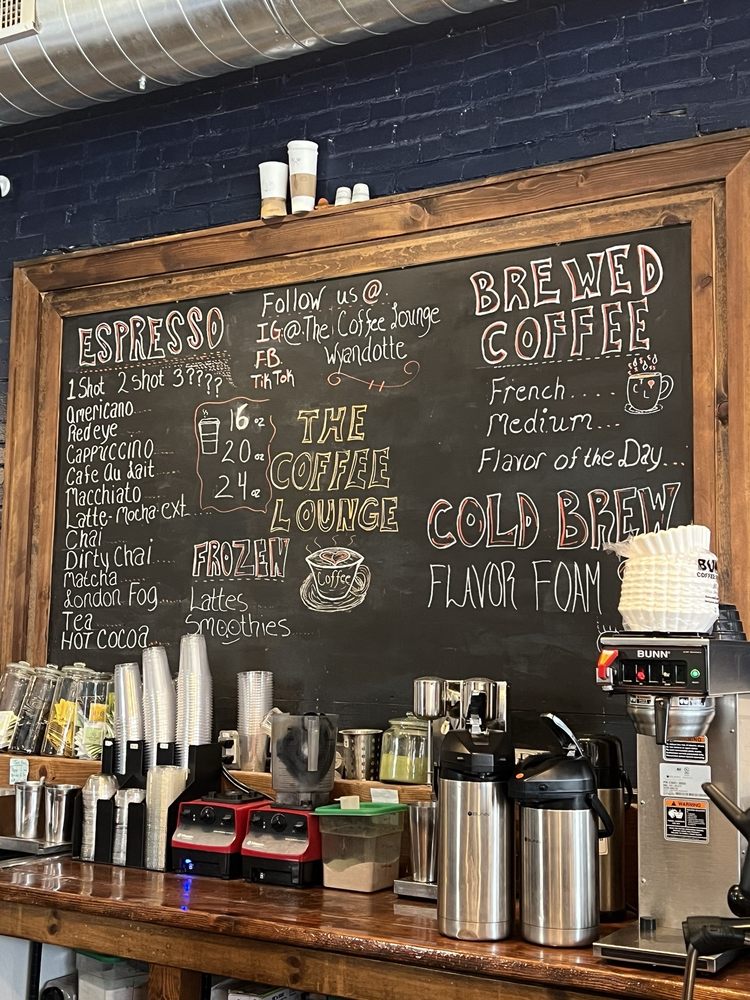 ESPRESSO
1 Shot 2 Shot 3????
Americano
Redeye
Cappuccino
Cafe Au dait
Macchiato
Latte-Mocha-ext.
Chai
Dirty Chai
Matcha
London Fog
Tea
HOT COCOA
Follow us @
IG@The Coffee Lounge
Wyandotte
FB
TikTok
16 oz
20 oz
24 oz
THE
COFFEE
LOUNGE
Coffee
FROZEN
Lattes
Smoothies
BREWED
COFFEE
French.....
Medium...
Flavor of the Day...
COLD BREW
FLAVOR FOAM
BUNN
WARNING